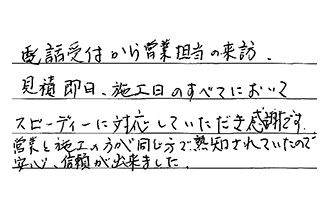 電話受付から営業担当の来訪、
見積即日、施工日のすべてにおいて
スピーディーに対応していただき感謝です。
営業と施工の方が同じ方で熟知されていたので
安心、信頼が出来ました。